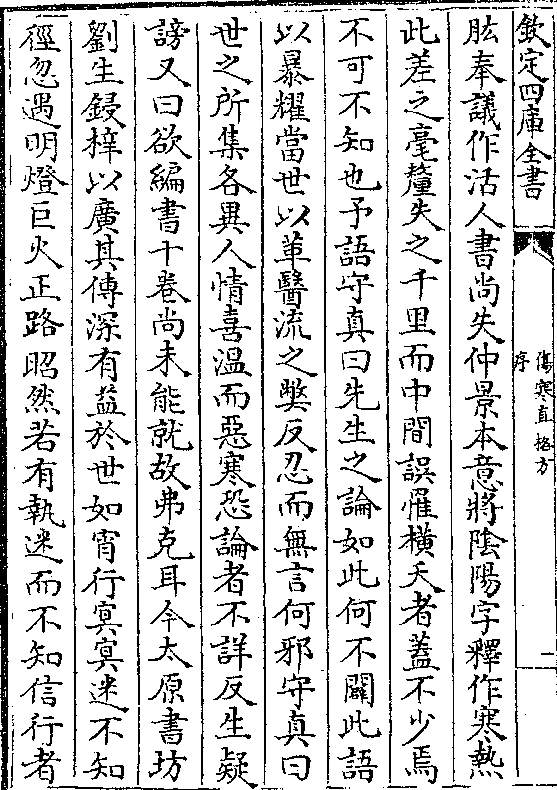 欽定四庫全書
傷寒直格方
序
二
肱奉議作活人書尚失仲景本意將隂陽字釋作寒熱
此差之毫釐失之千里而中間誤罹橫夭者蓋不少焉
不可不知也予語守真曰先生之論如此何不闢此語
以暴耀當世以革醫流之弊反忍而無言何邪守真曰
世之所集各異人情喜温而惡寒恐論者不詳反生疑
謗又曰欲編書十卷尚未能就故弗克耳今太原書坊
劉生鋟梓以廣其傳深有益於世如宵行冥冥迷不知
徑忽遇明燈巨火正路昭然若有執迷而不知信行者